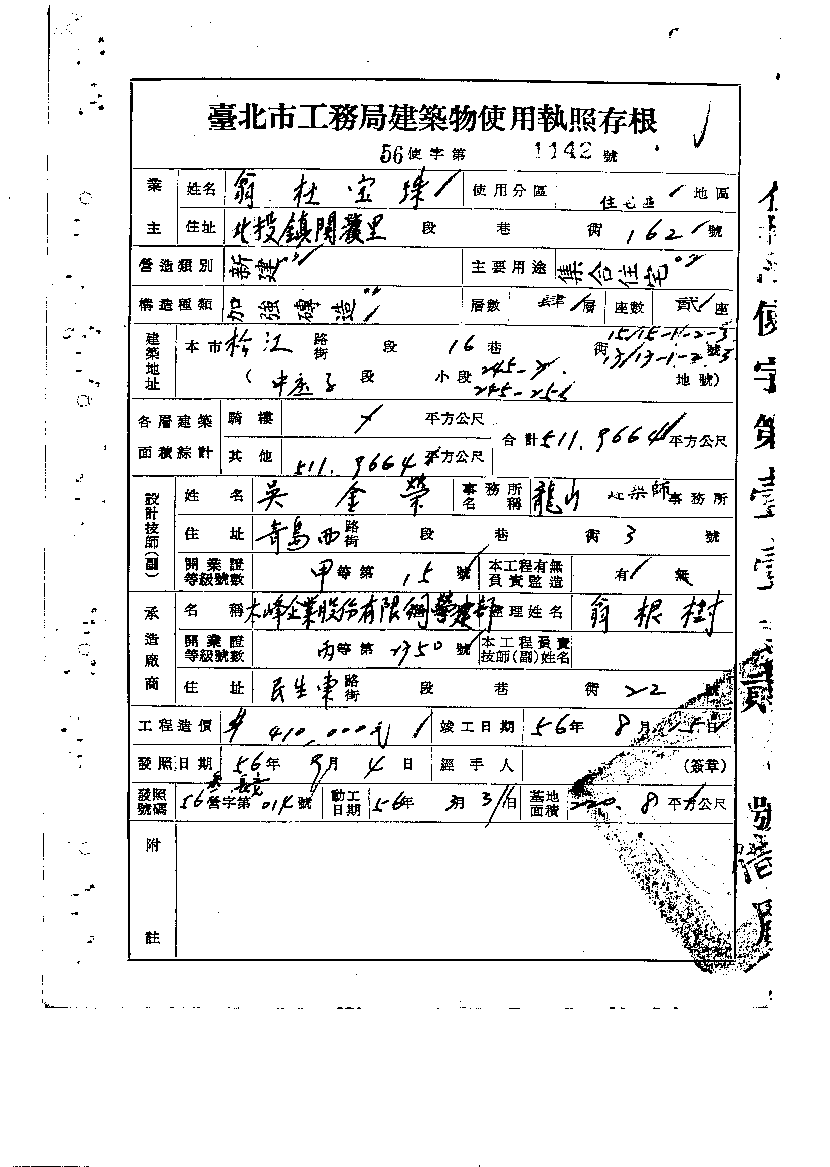 臺北市工務局建築物使用執照存根
56使字第 1142 號
業主 姓名 翁杜宝 使用分區 住宅區 地區
住址 北投鎮關渡里 段 巷 街 162 號
營造類別 新建 主要用途 集合住宅
構造種類 加強磚造 層數 肆 層 座數 貳 座
建築地址 本市松江路街 段 16 巷 街 15/15-1-2-3 13/13-1-2-3 號
( 段 小段 地號)
各層建築面積綜計 騎樓 平方公尺 合計 511.9664 平方公尺
其他 511.9664 平方公尺
設計技師(副) 姓名 吳金榮 事務所名稱 龍山建築師事務所
住址 青島西路街 段 巷 街 3 號
開業證等級號數 甲等第 15 號 本工程有無負責監造 有 無
承造廠商 名稱 木峰企業股份有限公司營建部 經理姓名 翁根樹
開業證等級號數 丙等第 號 本工程負責技師(副)姓名
住址 民生東路街 段 巷 街 22 號
工程造價 410,000元 竣工日期 56年 8月 日
發照日期 56年 9月 4日 經手人 (簽章)
發照號碼 56營字第 014 號 動工日期 56年 3月 日 基地面積 平方公尺
附註
使字第壹壹 貳號